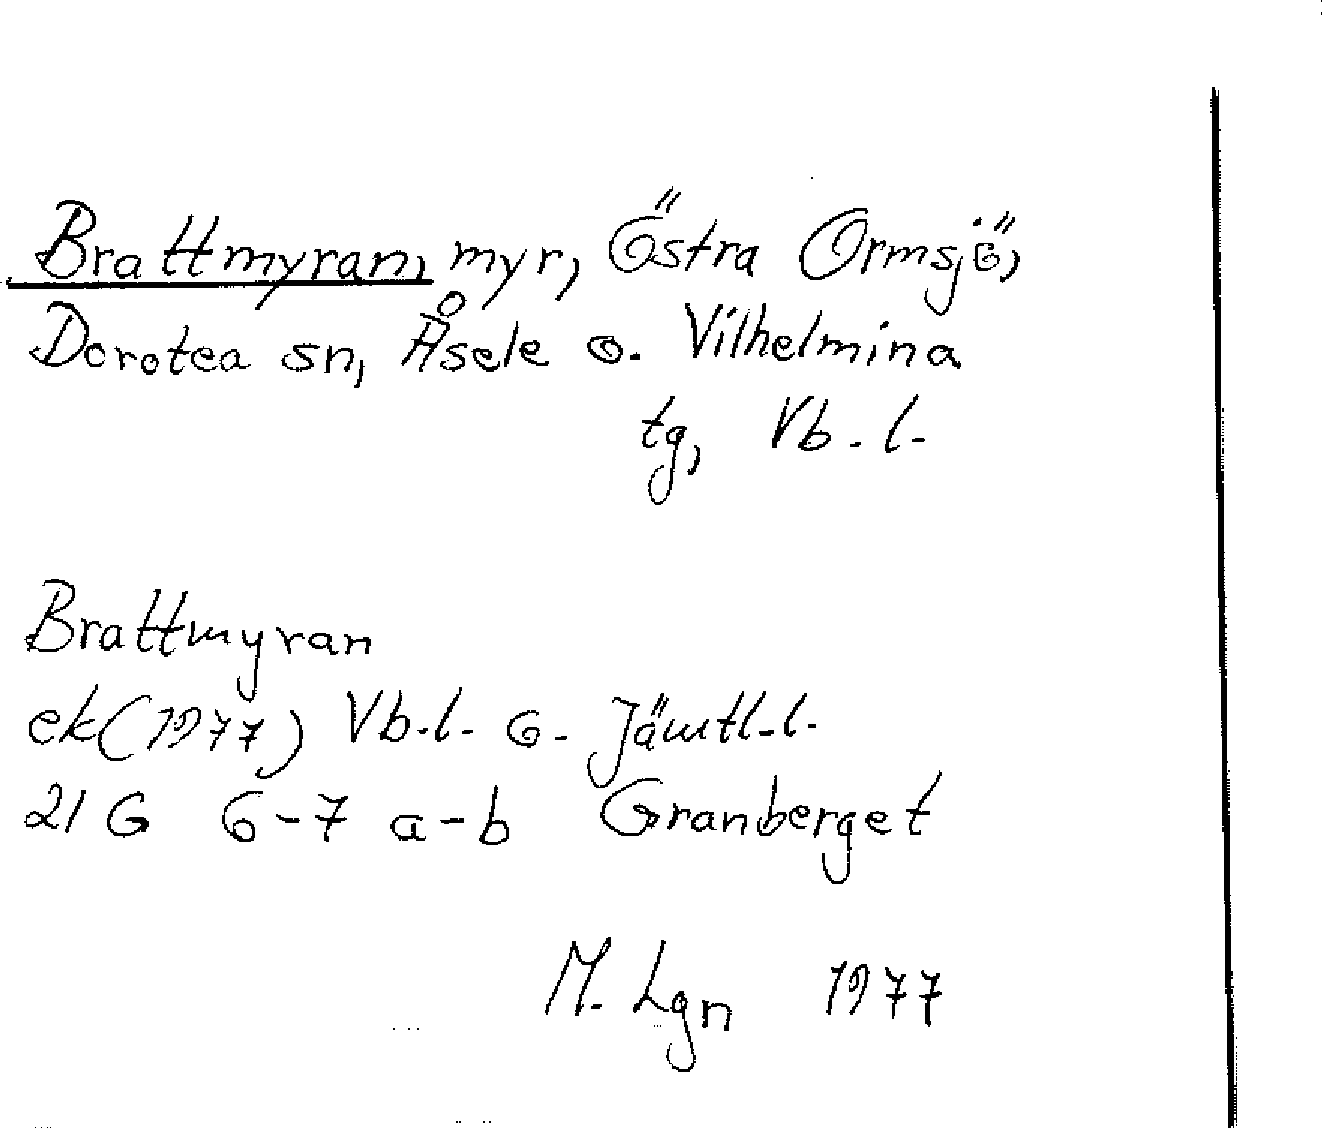 Brattmyran, myr, Östra Ormsjö,
Dorotea sn, Åsele o. Vilhelmina
tg, Vb.l.
Brattmyran
ek(1977) Vb.l. o. Jämtl.l.
21 G 6-7 a-b Granberget
M. Lgn 1977